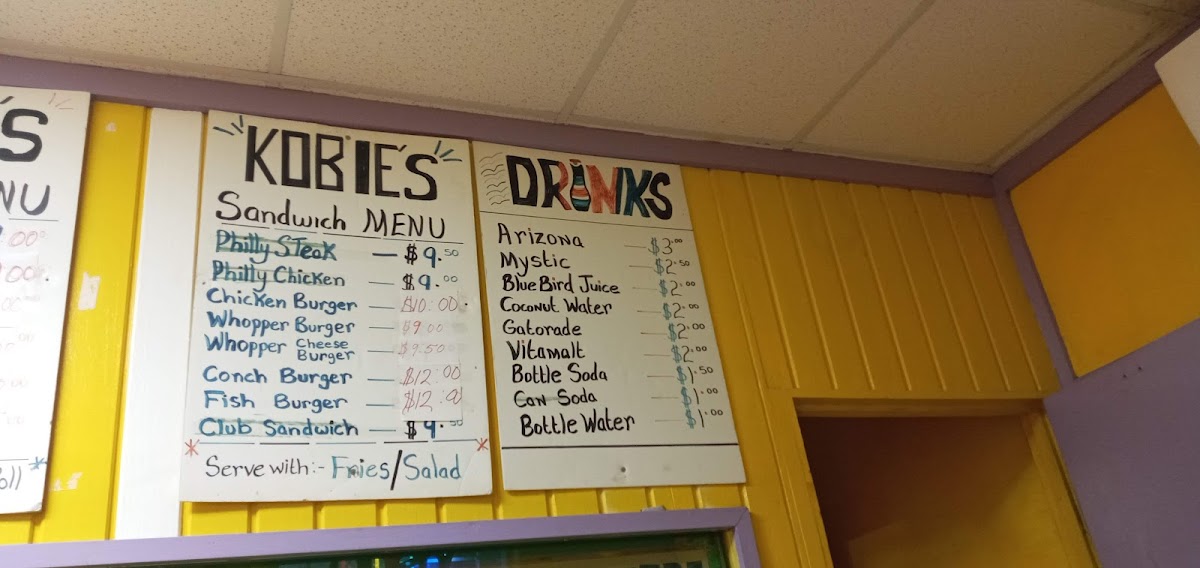 'S
NU
00
00
oll
KOBIE'S
Sandwich MENU
Philly STeak — $9.50
Philly Chicken — $9.00
Chicken Burger — $10.00
Whopper Burger — $9.00
Whopper Cheese Burger — $9.50
Conch Burger — $12.00
Fish Burger — $12.00
Club Sandwich — $9.50
* *
Serve with:- Fries/Salad
DRINKS
Arizona — $3.00
Mystic — $2.50
Blue Bird Juice — $2.00
Coconut Water — $2.00
Gatorade — $2.00
Vitamalt — $2.00
Bottle Soda — $1.50
Can Soda — $1.00
Bottle Water — $1.00